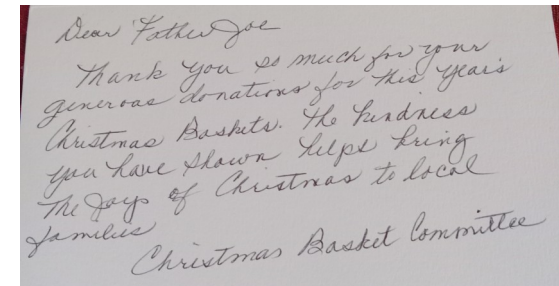 Dear Father Joe
Thank you so much for your
generous donations for this year's
Christmas Baskets. The kindness
you have shown helps bring
The Joys of Christmas to local
families
Christmas Basket Committee